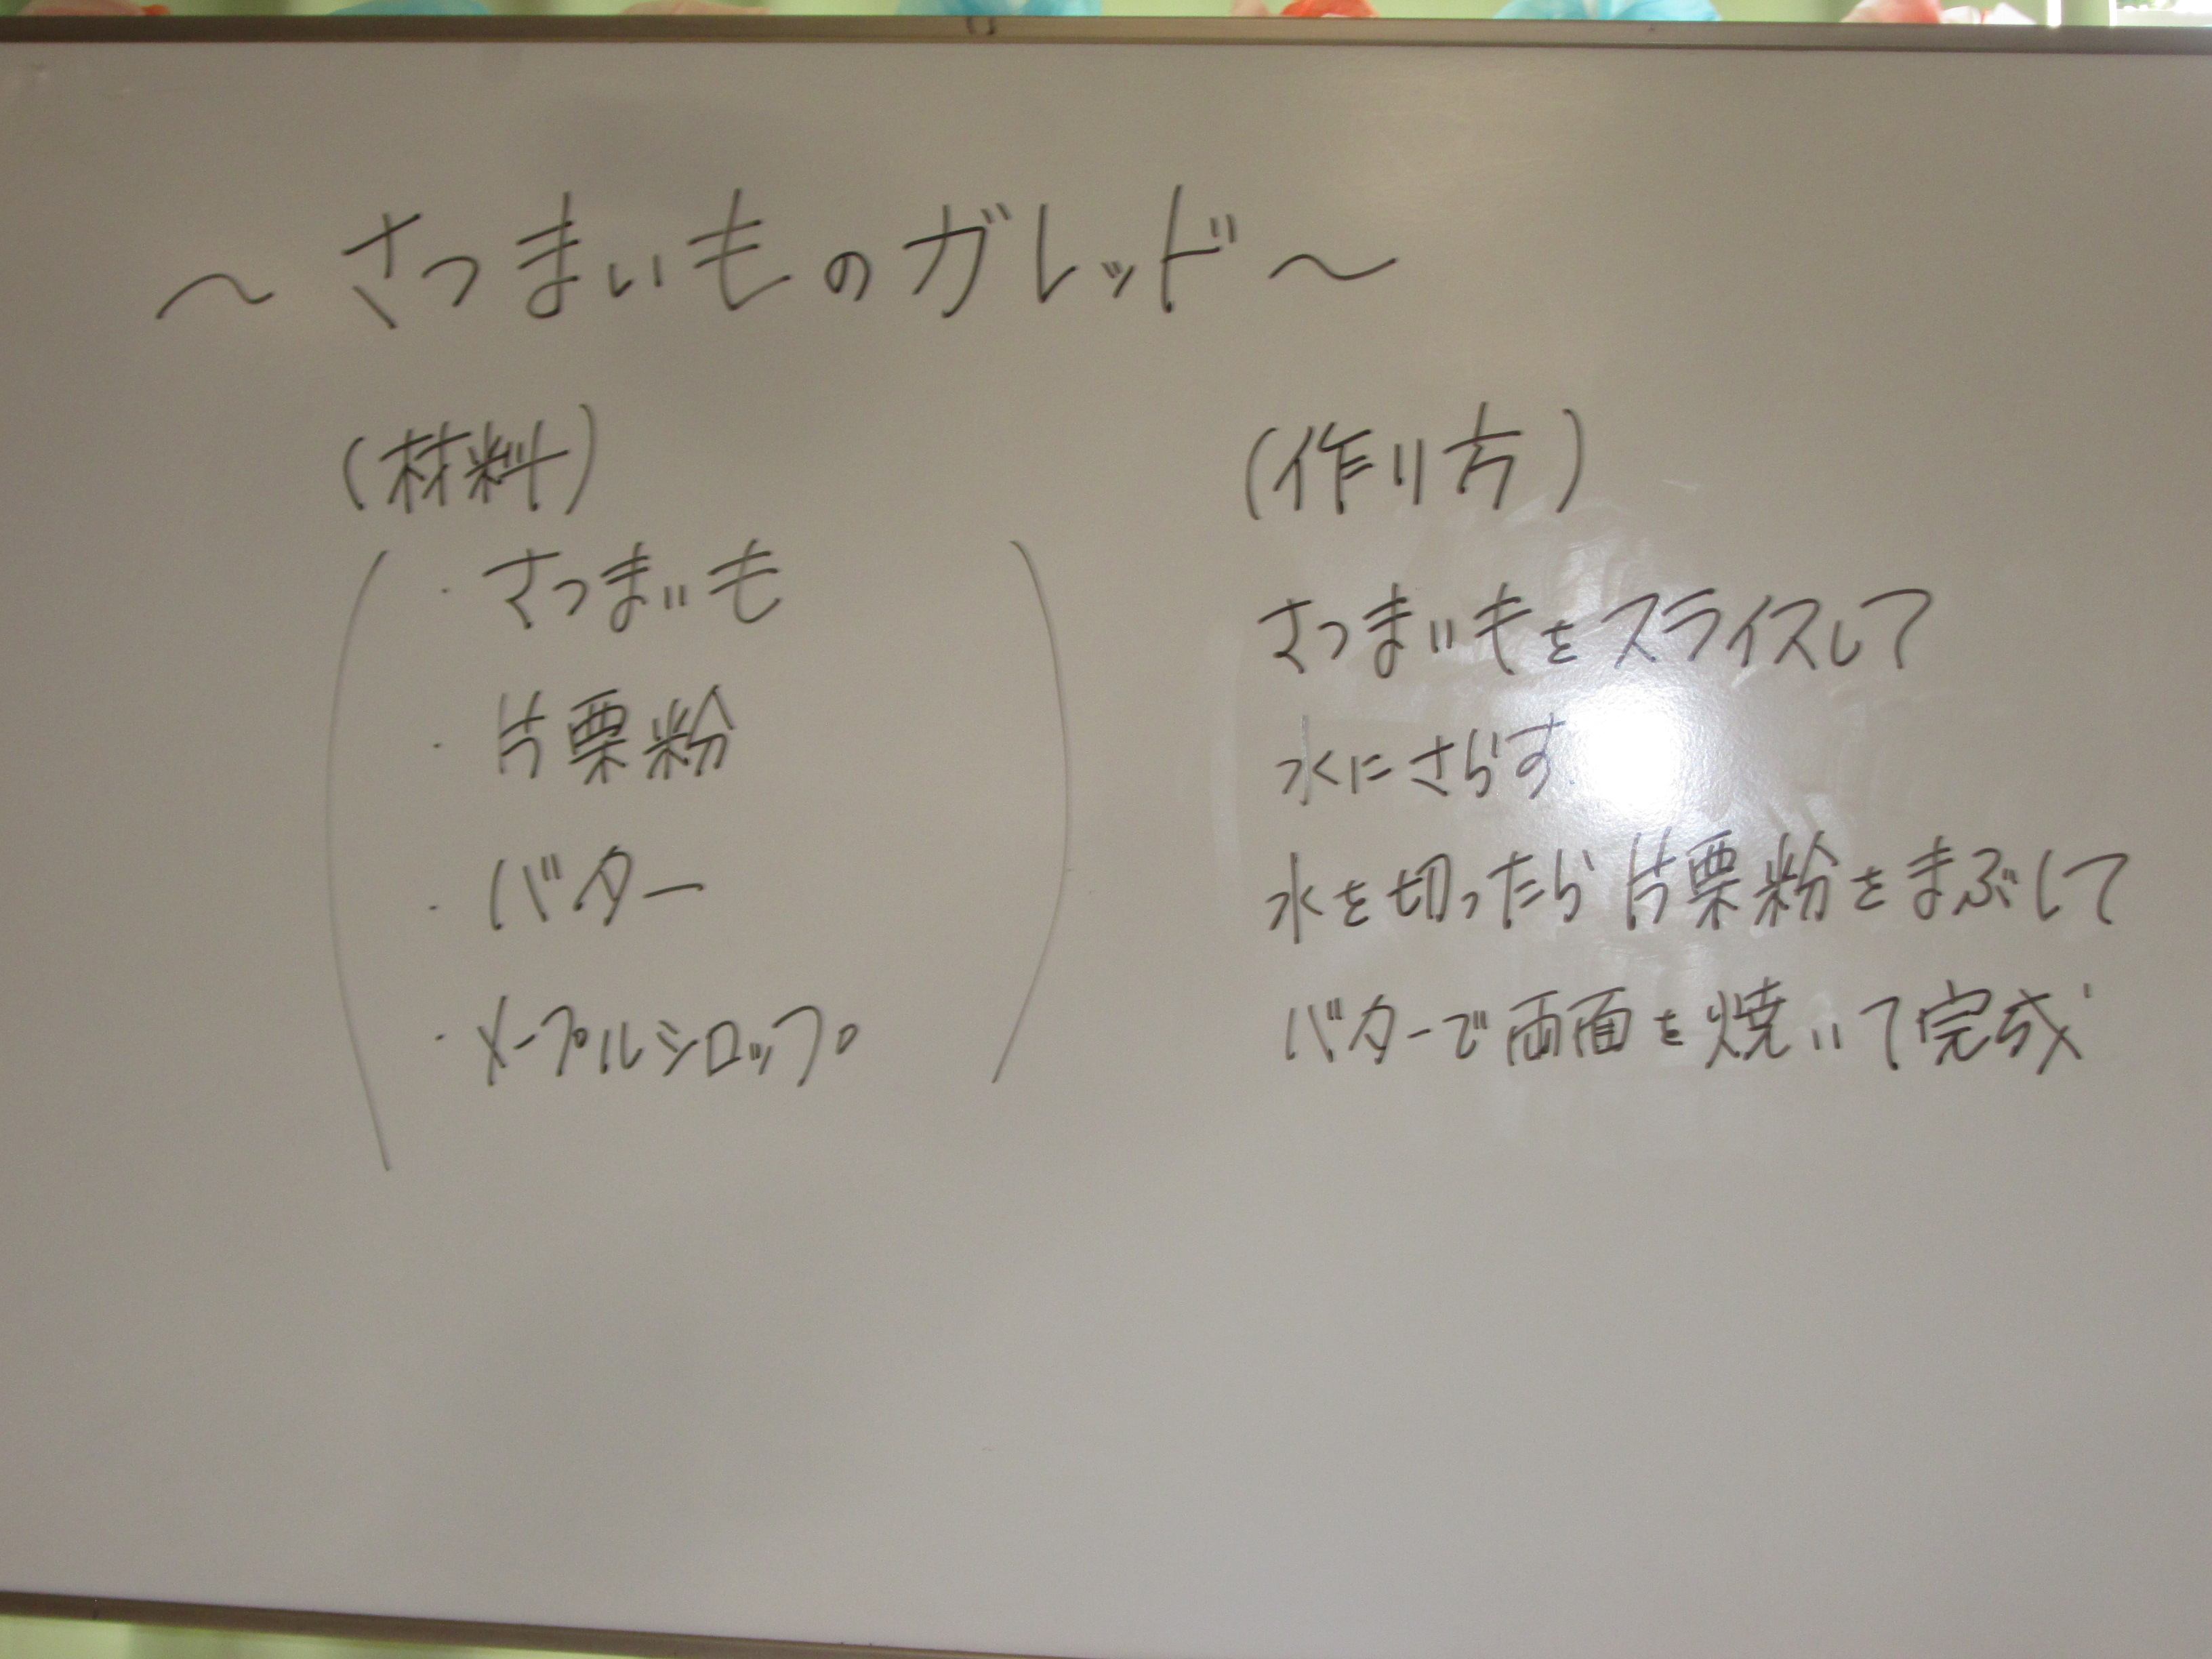 〜さつまいものガレッド〜
(材料)
・さつまいも
・片栗粉
・バター
・メープルシロップ
(作り方)
さつまいもをスライスして
水にさらす
水を切ったら片栗粉をまぶして
バターで両面を焼いて完成